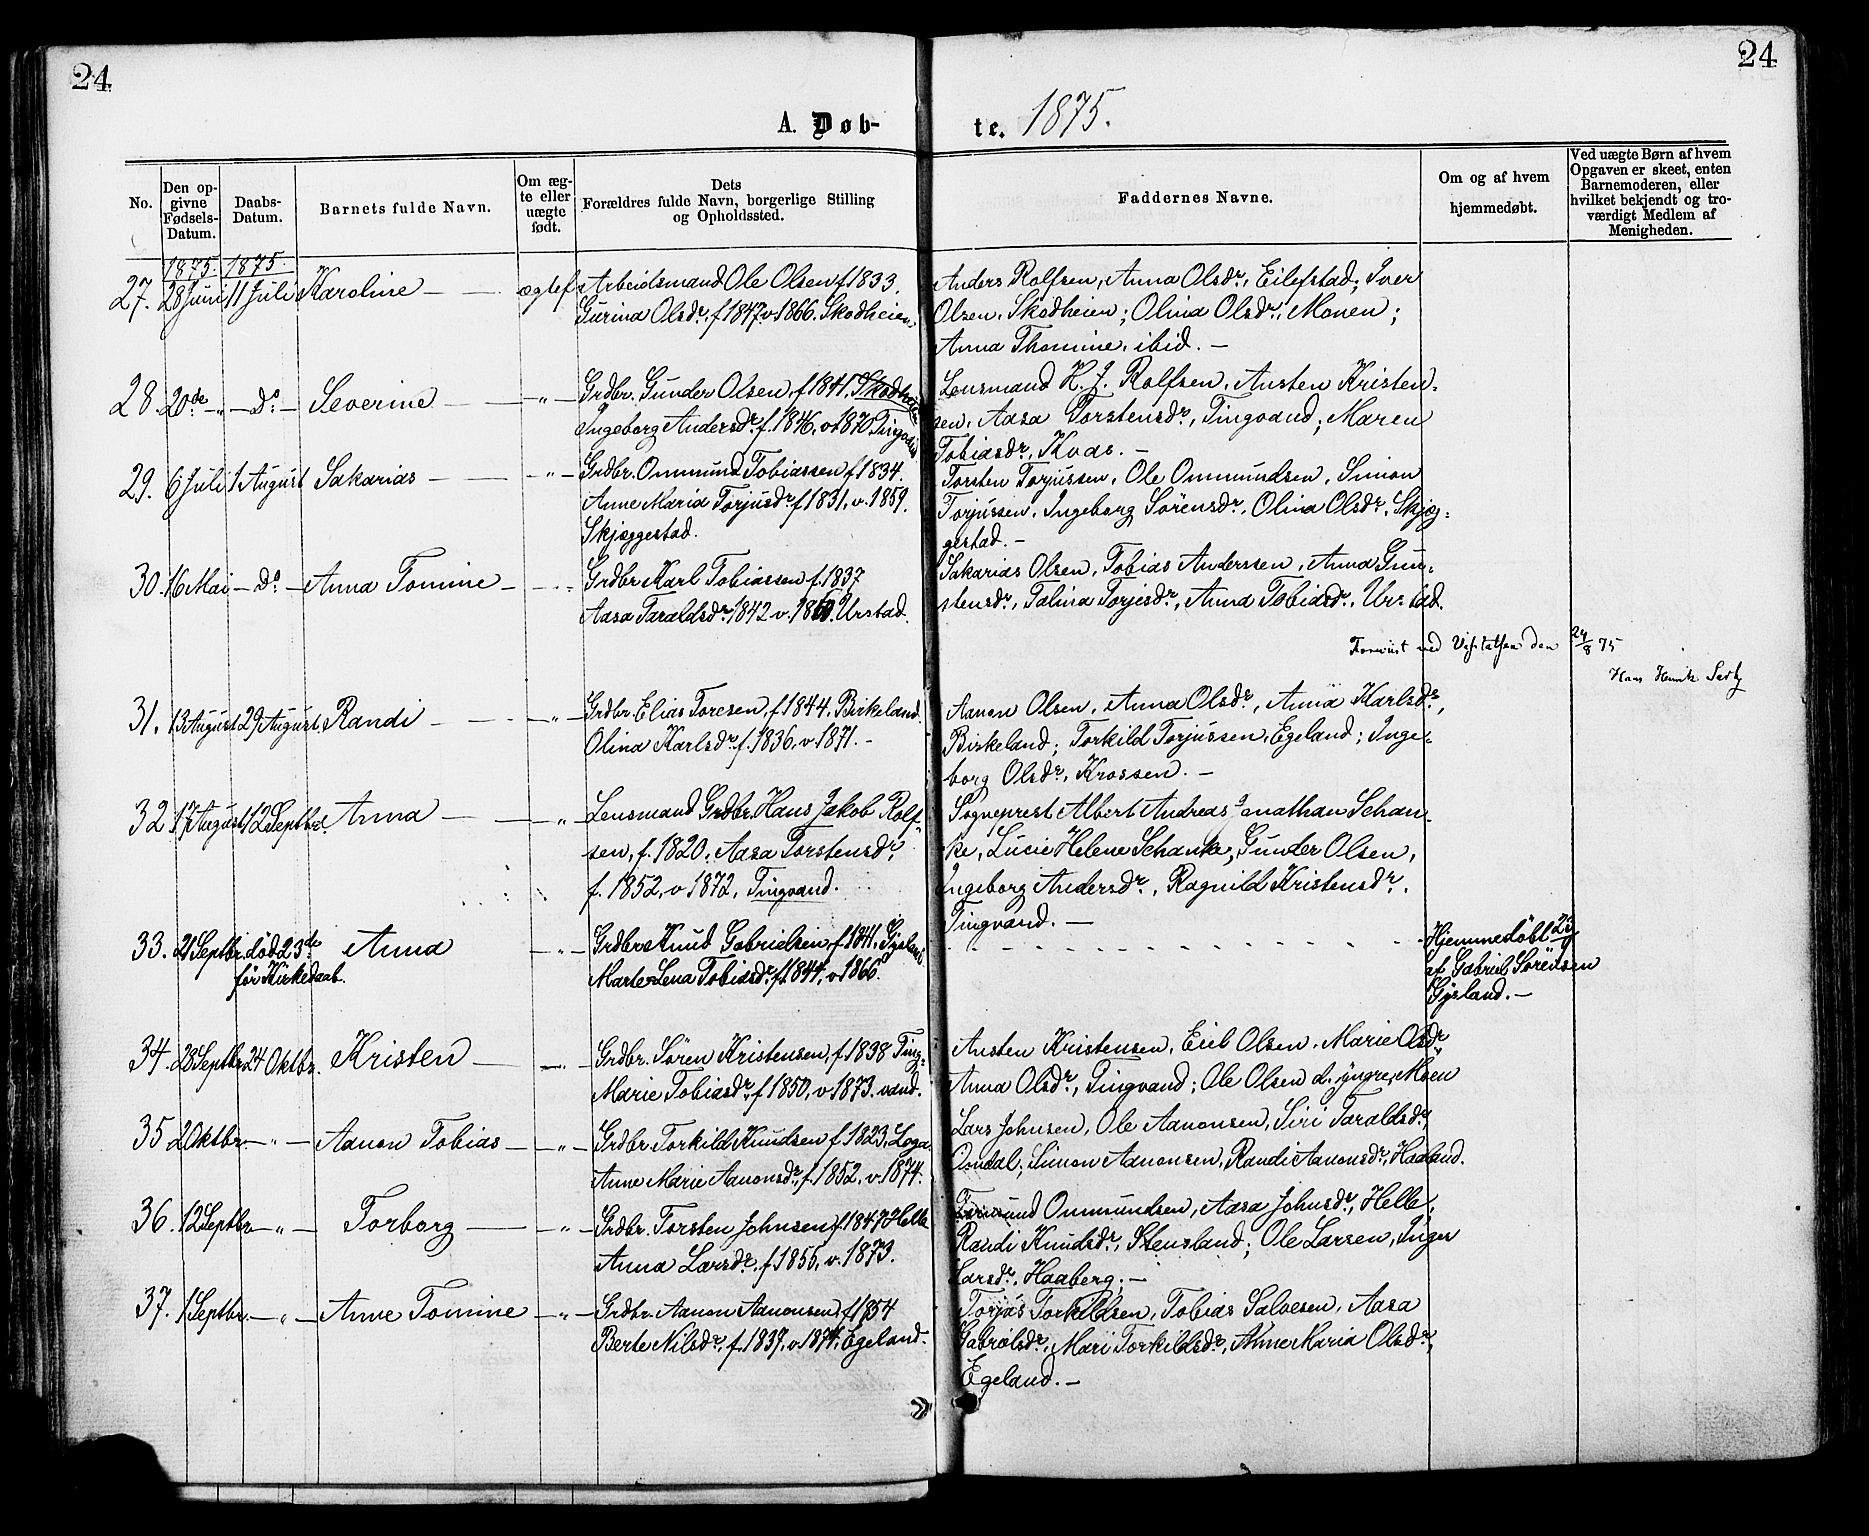 24
24
A. Døb-
te. 1875.
No.
Den op-
givne
Fødsels-
Datum.
Daabs-
Datum.
Barnets fulde Navn.
Om æg-
te eller
uægte
født.
Dets
Forældres fulde Navn, borgerlige Stilling
og Opholdssted.
Faddernes Navne.
Om og af hvem
hjemmedøbt.
Ved uægte Børn af hvem
Opgaven er skeet, enten
Barnemoderen, eller
hvilket bekjendt og tro-
værdigt Medlem af
Menigheden.
1875. 1875.
27. 28 Juni 11 Juli Karoline — ægtef. Arbeidsmand Ole Olsen f 1833.
Gurina Olsdr. f 1847. v 1866. Skodheien
Anders Rolfsen, Anna Olsdr., Eilefstad; Iver
Olsen, Skodheien; Olina Olsdr., Monen;
Anna Thomine, ibid. —
28. 20de — „ — Do — Severine — „ — Grdbr. Gunder Olsen, f. 1841, Skodheien
Ingeborg Andersdr. f. 1846, v 1870 Tingvand
Lensmand H. J. Rolfsen, Austen Kristen-
sen, Aasa Torstensdr., Tingvand; Maren
Tobiasdr., Kvas. —
29. 6 Juli 1 August Sakarias — „ — Grdbr. Ommund Tobiassen f 1834.
Anne Maria Torjusdr. f 1831, v. 1859.
Skjæggestad.
Torsten Torjussen, Ole Ommundsen, Simon
Torjussen, Ingeborg Sörensdr., Olina Olsdr., Skjæg-
gestad. —
30. 16 Mai — Do — Anna Tomine — Grdbr. Karl Tobiassen f. 1837
Aasa Taraldsdr. 1842 v. 1860. Urstad.
Sakarias Olsen, Tobias Anderssen, Anna Gun-
stensdr., Talina Torjesdr., Anna Tobiasdr., Urstad.
ved Visitatsen den 24/8 75
Hans Henrik
31. 13 August 29 August. Randi — „ — Grdbr. Elias Toresen, f. 1844. Birkeland.
Olina Karlsdr. f. 1836, v 1871. —
Aanon Olsen, Anna Olsdr., Anna Karlsdr.,
Birkeland; Torkild Torjussen, Egeland; Inge-
borg Olsdr., Krossen. —
32. 17 August 12 Septbr. Anna — „ — Lensmand Grdbr. Hans Jakob Rolf-
sen, f. 1820, Aasa Torstensdr.
f. 1852, v 1872, Tingvand.
Sogneprest Albert Andreas Jonathan Schan-
ke, Lucie Helene Schanke, Gunder Olsen,
Ingeborg Andersdr., Ragnild Kristensdr.
Tingvand. —
33. 21 Septbr. död 23de Anna — „ — Grdbr. Knud Gabrielsen, f 1841, Gysland
för Kirkedaab. Marte Lena Tobiasdr. f 1844, v 1866.
Hjemmedöbt 23/9
af Gabriel Sörensen
Gysland. —
34. 28 Septbr. 24 Oktbr. Kristen — „ — Grdbr. Sören Kristensen, f. 1838 Ting-
Marie Tobiasdr. f 1850, v 1873. vand.
Austen Kristensen, Erik Olsen, Marie Olsdr
Anna Olsdr., Tingvand; Ole Olsen d. yngre, Moen
35 2 Oktbr. — „ — Aanon Tobias — „ — Grdbr. Torkild Knudsen f. 1823, Loga-
Anne Marie Aanonsdr. f. 1852, v. 1874.
Lars Johnsen, Ole Aanonsen, Siri Taraldsdr.,
Simon Aanonsen, Randi Aanonsdr., Haaland.
36. 12 Septbr. — „ — Torborg — „ — Grdbr. Torsten Johnsen, f 1847 Helle
Anna Larsdr., f 1855, v. 1873.
Ommundsen, Aasa Johnsdr., Helle;
Randi Knudsdr., Stensland; Ole Larsen, Inger
Larsdr., Haaberg. —
37. 1 Septbr. — „ — Anne Tomine — „ — Grdbr. Aanon Aanonsen, f 1854
Berte Nilsdr., f. 1837, v 1874, Egeland.
Torjus Torkildsen, Tobias Salvesen, Aasa
Gabrielsdr., Mari Torkildsdr., Anne Maria Olsdr.,
Egeland. —